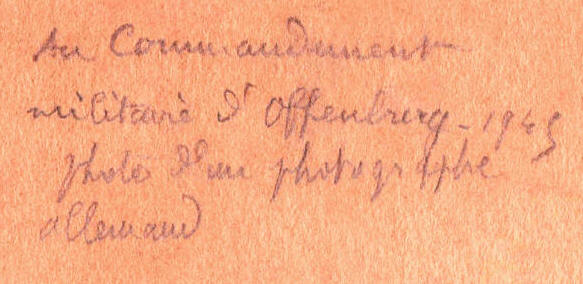 Au Commandement
militaire d'Offenburg - 1945
photo d'un photographe
allemand